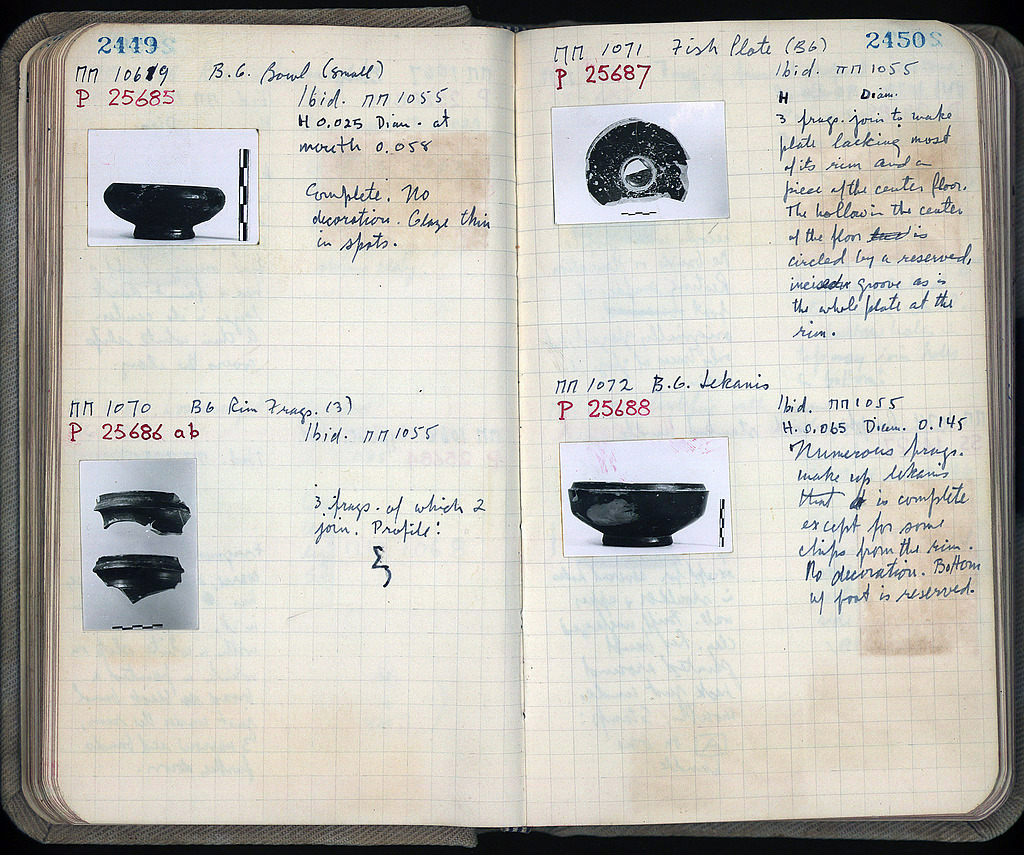 2449
ΠΠ 1069 B.G. Bowl (small)
P 25685
Ibid. ΠΠ 1055
H 0.025 Diam. at
mouth 0.058
Complete. No
decoration. Glaze thin
in spots.
ΠΠ 1070 BG Rim Frags. (3)
P 25686 ab
Ibid. ΠΠ 1055
3 frags. of which 2
join. Profile:
2450
ΠΠ 1071 Fish Plate (BG)
P 25687
Ibid. ΠΠ 1055
H Diam.
3 frags. join to make
plate lacking most
of its rim and a
piece of the center floor.
The hollow in the center
of the floor is
circled by a reserved,
incised groove as is
the whole plate at the
rim.
ΠΠ 1072 B.G. Lekanis
P 25688
Ibid. ΠΠ 1055
H. 0.065 Diam. 0.145
Numerous frags.
make up lekanis
that is complete
except for some
chips from the rim.
No decoration. Bottom
of foot is reserved.